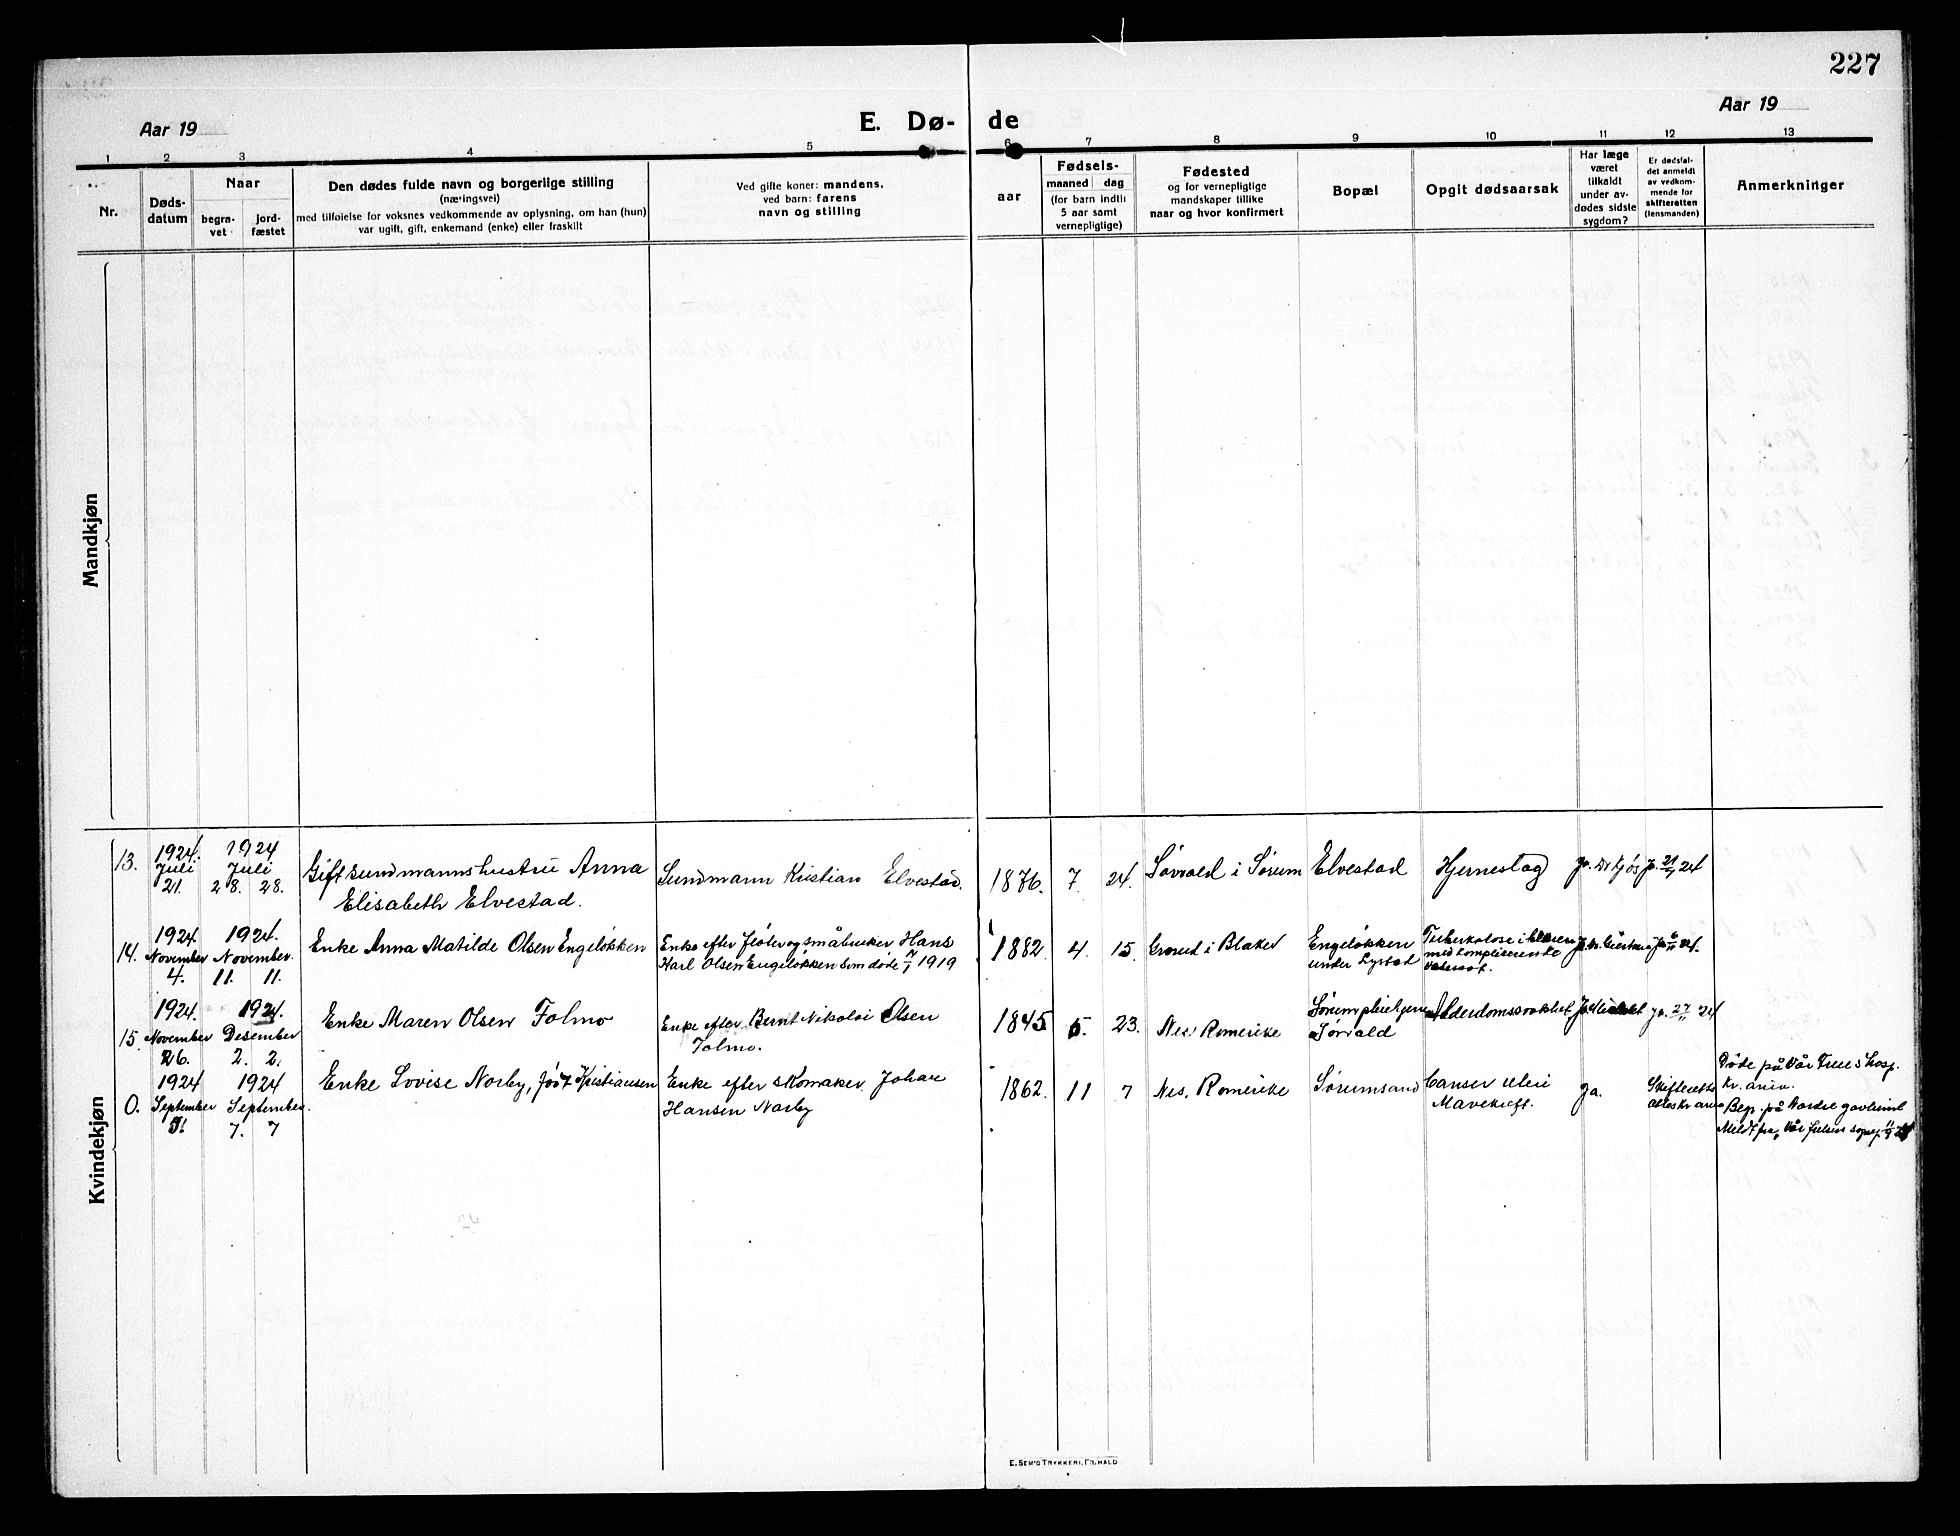 227
Aar 19
E. Dø-
de
Aar 19
1 2 3 4 5 6 7 8 9 10 11 12 13
Nr.
Døds-
datum
Naar
begra-
vet
jord-
fæstet
Den dødes fulde navn og borgerlige stilling
(næringsvei)
med tilføielse for voksnes vedkommende av oplysning, om han (hun)
var ugift, gift, enkemand (enke) eller fraskilt
Ved gifte koner: mandens,
ved barn: farens
navn og stilling
aar
Fødsels-
maaned dag
(for barn indtil
5 aar samt
vernepligtige)
Fødested
og for vernepligtige
mandskaper tillike
naar og hvor konfirmert
Bopæl
Opgit dødsaarsak
Har læge
været
tilkaldt
under av-
dødes sidste
sygdom?
Er dødsfal-
det anmeldt
av vedkom-
mende for
skifteretten
(lensmanden)
Anmerkninger
Mandkjøn
Kvindekjøn
13.
1924.
Juli
21.
1924
Juli
28. 28.
Gift sundmannshustru Anna
Elisabeth Elvestad.
Sundmann Kristian Elvestad.
1876. 7. 24.
Sørvald i Sørum
Elvestad
Hjerneslag
14.
1924.
November
4.
1924.
November.
11. 11.
Enke Anna Matilde Olsen Engeløkken
Enke efter fløter og småbruker Hans
Karl Olsen Engeløkken som døde 7/1 1919
1882. 4. 15.
Grorud i Blaker
Engeløkken
under
Tuberkolose i
med kompliserende
15.
1924.
November
26.
1924.
Desember
2. 2.
Enke Maren Olsen Folmo
Enke efter Bernt Nikolai Olsen
Folmo.
1845 5. 23.
Nes Romerike
Sørum pleiehjem
Sørvald
Alderdomssvakhet
ja. 27/11 24
0.
1924
September
1924
September.
7. 7
Enke Lovise Norby, født Kristiansen
Enke efter skomaker Johan
Hansen Norby
1862. 11 7
Nes. Romerike
Sørumsand
Canser uteri
Mavekreft.
Ja.
Skifteretts
Døde på Vår Frues hosp.
Kr.ania.
Begr. på Nordre gravlund
Meldt fra Vår
E. SEM'S TRYKKERI, FR.HALD